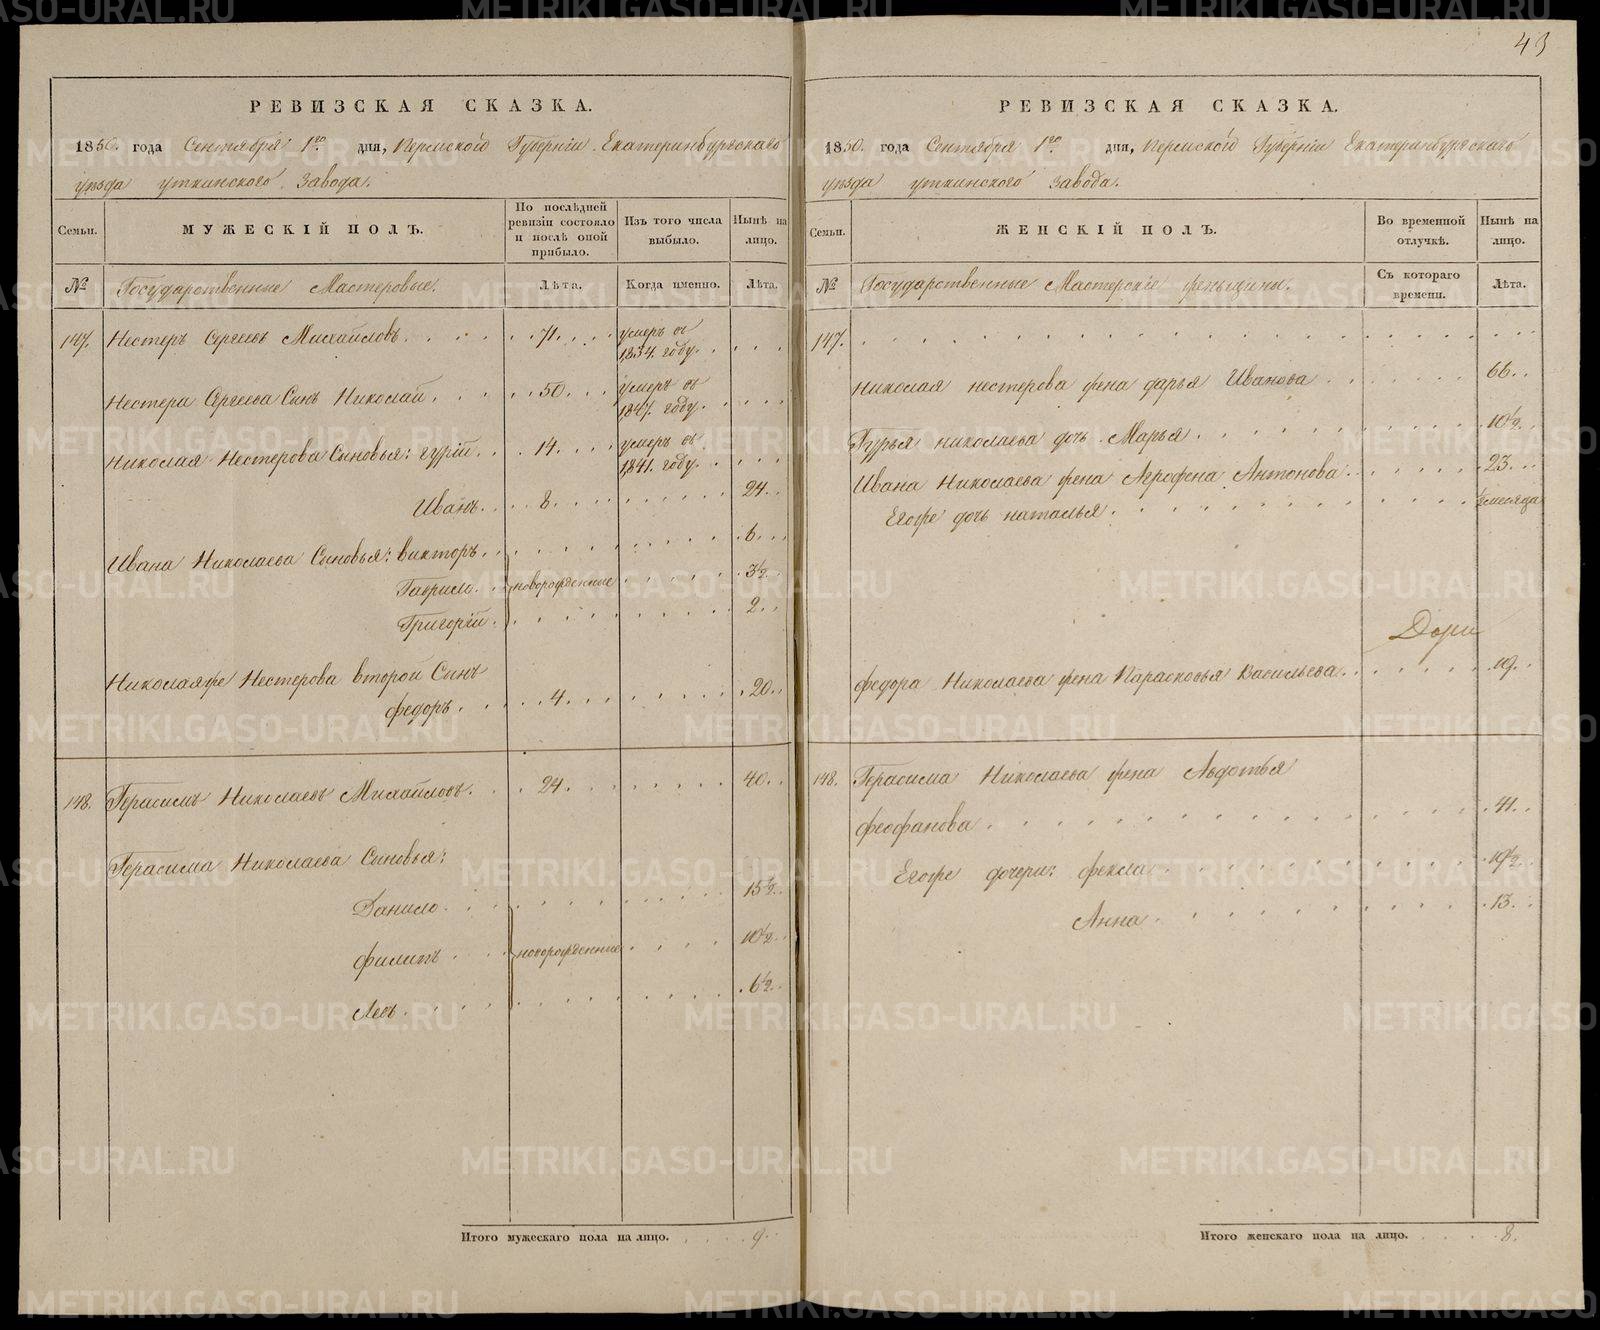 43
РЕВИЗСКАЯ СКАЗКА.
1850. года Сентября 1го дня, Пермской Губерніи Екатеринбургскаго
уѣзда уткинского Завода.
Семьи.
МУЖЕСКІЙ ПОЛЪ.
По послѣдней ревизіи состояло и послѣ оной прибыло.
Изъ того числа выбыло.
Нынѣ на лицо.
№
Государственные Мастеровые.
Лѣта.
Когда именно.
Лѣта.
147. Нестеръ Сергеевъ Михайловъ. 71. умеръ въ 1834. году.
Нестера Сергеева Сынъ Николай. 50. умеръ въ 1847. году.
Николая Нестерова Сыновья: гурій. 14. умеръ въ 1841. году.
Иванъ. 8. 24.
Ивана Николаева Сыновья: викторъ. 6.
Гаврило. новорожденные 3½.
Григорій. 2.
Николаяже Нестерова второй Сынъ
федоръ. 4. 20.
148. Герасимъ Николаевъ Михайловъ. 24. 40.
Герасима Николаева Сыновья:
Данило. 15½.
филипъ. новорожденные 10½.
Левъ. 6½.
Итого мужескаго пола на лицо. 9.
РЕВИЗСКАЯ СКАЗКА.
1850. года Сентября 1го дня, Пермской Губерніи Екатеринбургскаго
уѣзда уткинского Завода.
Семьи.
ЖЕНСКІЙ ПОЛЪ.
Во временной отлучкѣ.
Нынѣ на лицо.
№
Государственные Мастерскіе женщины.
Съ котораго времени.
Лѣта.
147.
Николая нестерова жена дарья Иванова 66.
Гурья николаева дочь Марья. 10½.
Ивана Николаева жена Агрофена Антонова. 23.
Егоже дочь наталья. ½ месяца
федора Николаева жена Парасковья Васильева. 19.
148. Герасима Николаева жена Авдотья
феофанова. 41.
Егоже дочери: фекла. 19½.
Анна. 13.
Итого женскаго пола на лицо. 8.
METRIKI.GASO-URAL.RU